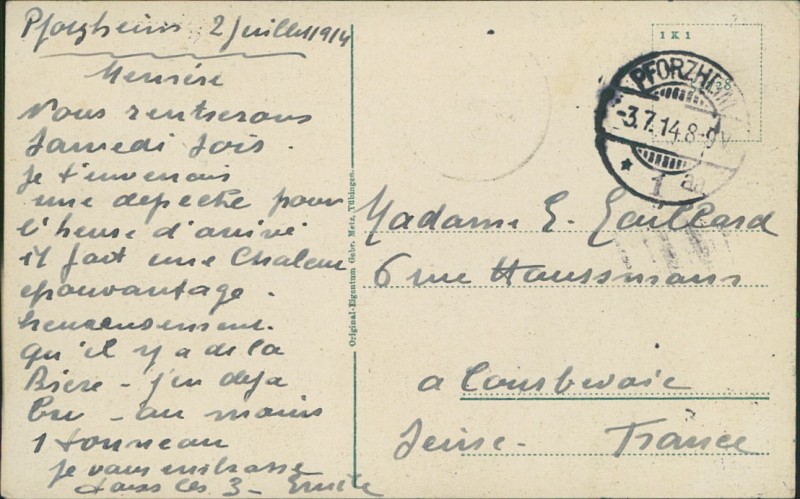 Pforzheim 2 Juillet 1914
Nous rentrerons
Samedi Soir.
Je t'inverrais
une depeche pour
l'heure d'arrivé
il fait une Chaleur
epouvantage.
heureusement.
qu'il y a de la
Biere - j'en deja
bu - au moins
1 tonneau
je vous embrasse
tous les 3 - Emile
Original-Eigentum Gebr. Metz, Tübingen.
1 K 1
PFORZHEIM
-3.7.14.8-9V
* 1 aa
Madame E. Gaillard
6 rue Haussmann
a Courbevoie
Seine - France